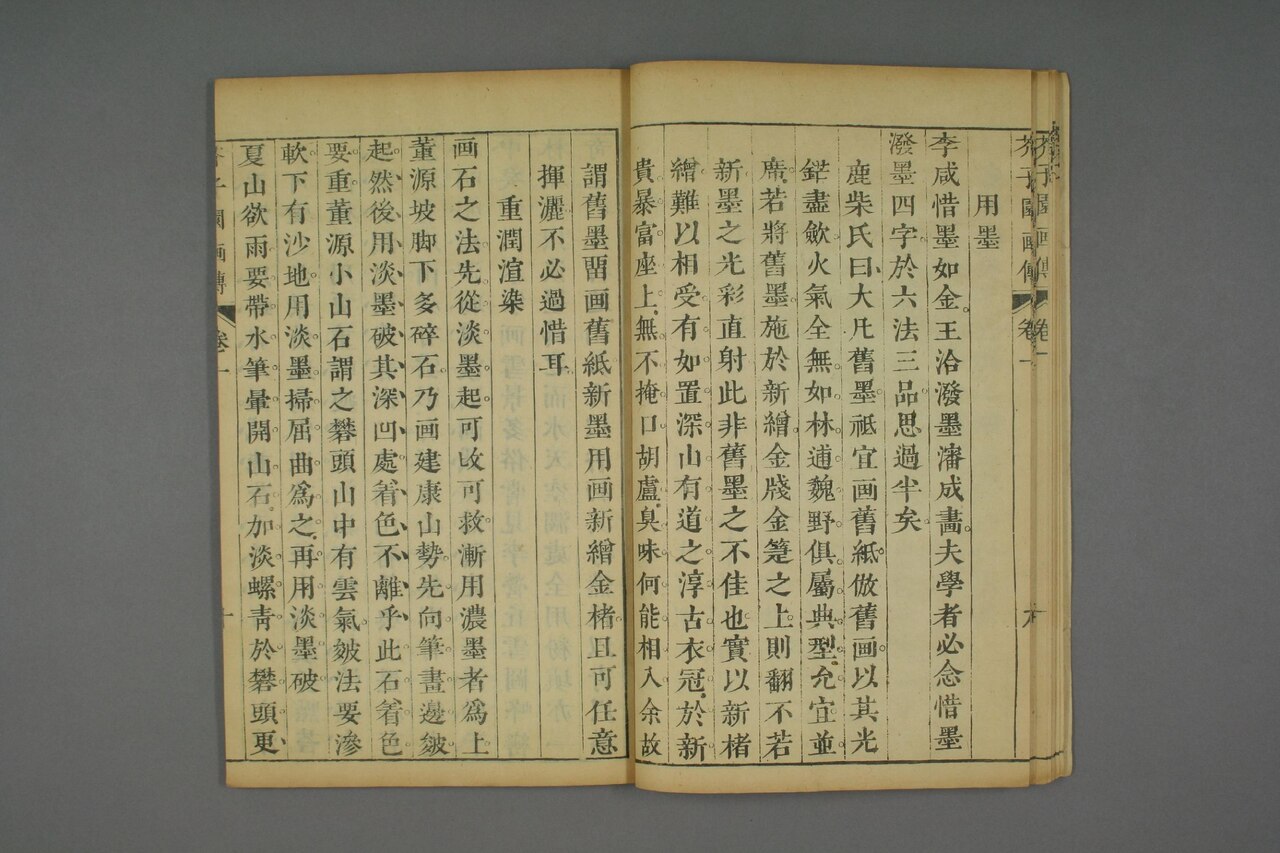 芥子園画傳 卷一
用墨
李咸惜墨如金。王洽潑墨瀋成畵。夫學者必念惜墨
潑墨四字。於六法三品。思過半矣。
鹿柴氏曰。大凡舊墨。祗宜画舊紙。倣舊画。以其光
鋩盡歛。火氣全無。如林逋魏野。俱屬典型。允宜並
席。若將舊墨施於新繒金牋金箑之上。則翻不若
新墨之光彩直射。此非舊墨之不佳也。實以新楮
繒難以相受。有如置深山有道之淳古衣冠。於新
貴暴富座上。無不掩口胡盧。臭味何能相入。余故
謂舊墨畱画舊紙。新墨用画新繒金楮。且可任意
揮灑。不必過惜耳。
重潤渲染
画石之法。先從淡墨起。可攺可救。漸用濃墨者爲上。
董源坡脚下多碎石。乃画建康山勢。先向筆畫邊皴
起。然後用淡墨破其深凹處。着色不離乎此。石着色
要重。董源小山石謂之礬頭。山中有雲氣。皴法要滲
軟。下有沙地。用淡墨掃。屈曲爲之。再用淡墨破。
夏山欲雨。要帶水筆暈開。山石加淡螺靑於礬頭。更
芥子園画傳 卷一 十